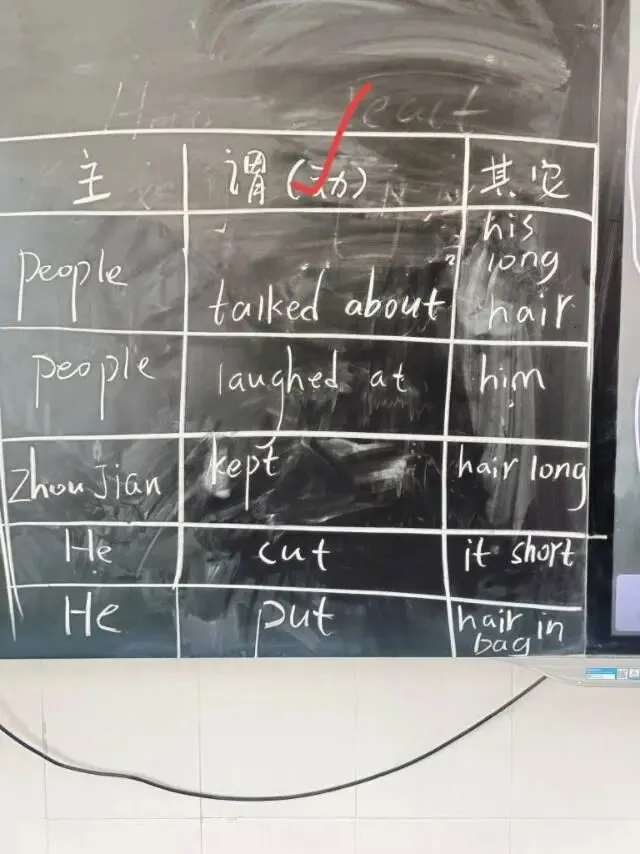 主 谓(动) 其它
his
long
people talked about hair
people laughed at him
Zhou Jian kept hair long
He cut it short
He put hair in
bag